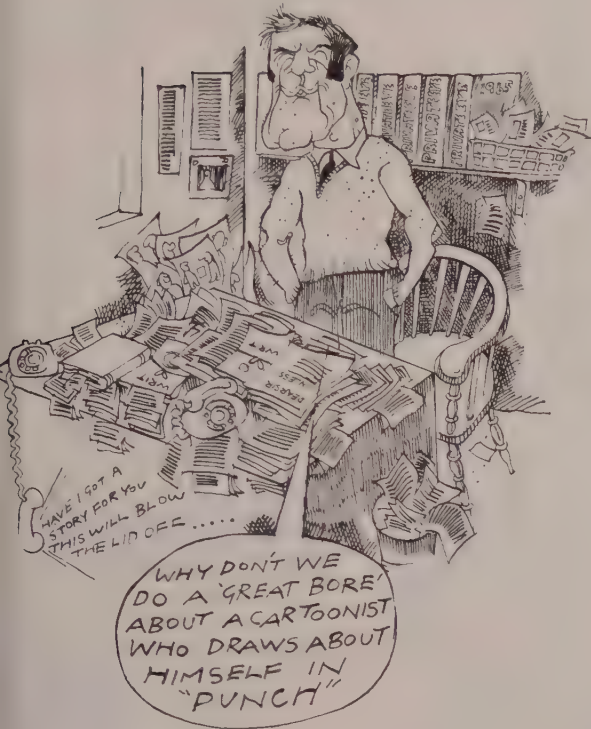 PRIVATE EYE
PRIVATE EYE
WRIT
WRIT
HAVE I GOT A
STORY FOR YOU
THIS WILL BLOW
THE LID OFF.....
WHY DON'T WE
DO A 'GREAT BORE'
ABOUT A CARTOONIST
WHO DRAWS ABOUT
HIMSELF IN
"PUNCH"